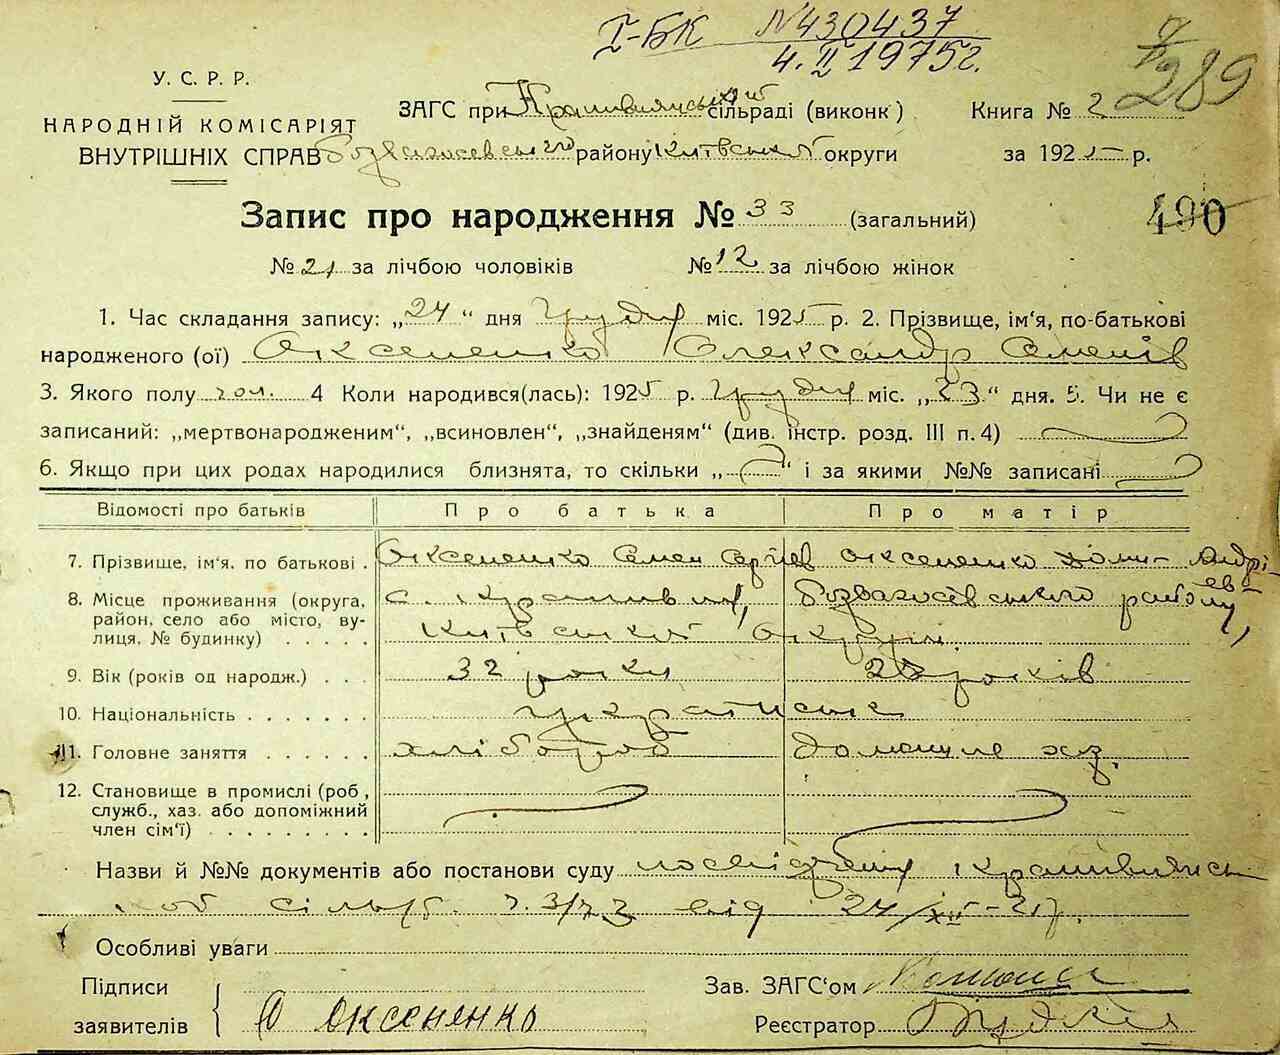 І-БК №430437
4.II 1975г.
289
У. С. Р. Р.
НАРОДНІЙ КОМІСАРІЯТ
ВНУТРІШНІХ СПРАВ
ЗАГС при Крапивянській сільраді (виконк) Книга № 2
Розважевського району Київської округи за 1925 р.
Запис про народження № 33 (загальний)
490
№ 21 за лічбою чоловіків № 12 за лічбою жінок
1. Час складання запису: „24“ дня грудня міс. 1925 р. 2. Прізвище, ім'я, по-батькові
народженого (ої) Оксененко Олександр Семенів
3. Якого полу чол. 4 Коли народився(лась): 1925 р. грудня міс. „23“ дня. 5. Чи не є
записаний: „мертвонародженим“, „всиновлен“, „знайденям“ (див. інстр. розд. III п. 4)
6. Якщо при цих родах народилися близнята, то скільки „ “ і за якими №№ записані
Відомості про батьків Про батька Про матір
7. Прізвище, ім'я, по батькові . Оксененко Семен Сергіев Оксененко Андрі-
ев-
8. Місце проживання (округа, с. Крапивня, Розважевського району,
район, село або місто, ву-
лиця, № будинку) . . . . . Київської округи.
9. Вік (років од народж.) . . . 32 роки років
10. Національність . . . . . . . українська
11. Головне заняття . . . . . . хлібороб домашнє хаз.
12. Становище в промислі (роб,
служб., хаз. або допоміжний
член сім'ї) . . . . . . . . .
Назви й №№ документів або постанови суду посвідчення Крапивянсь-
кої сільр. від 24/XII-25р.
Особливі уваги
Підписи Зав. ЗАГС'ом
заявителів { Оксененко Реєстратор